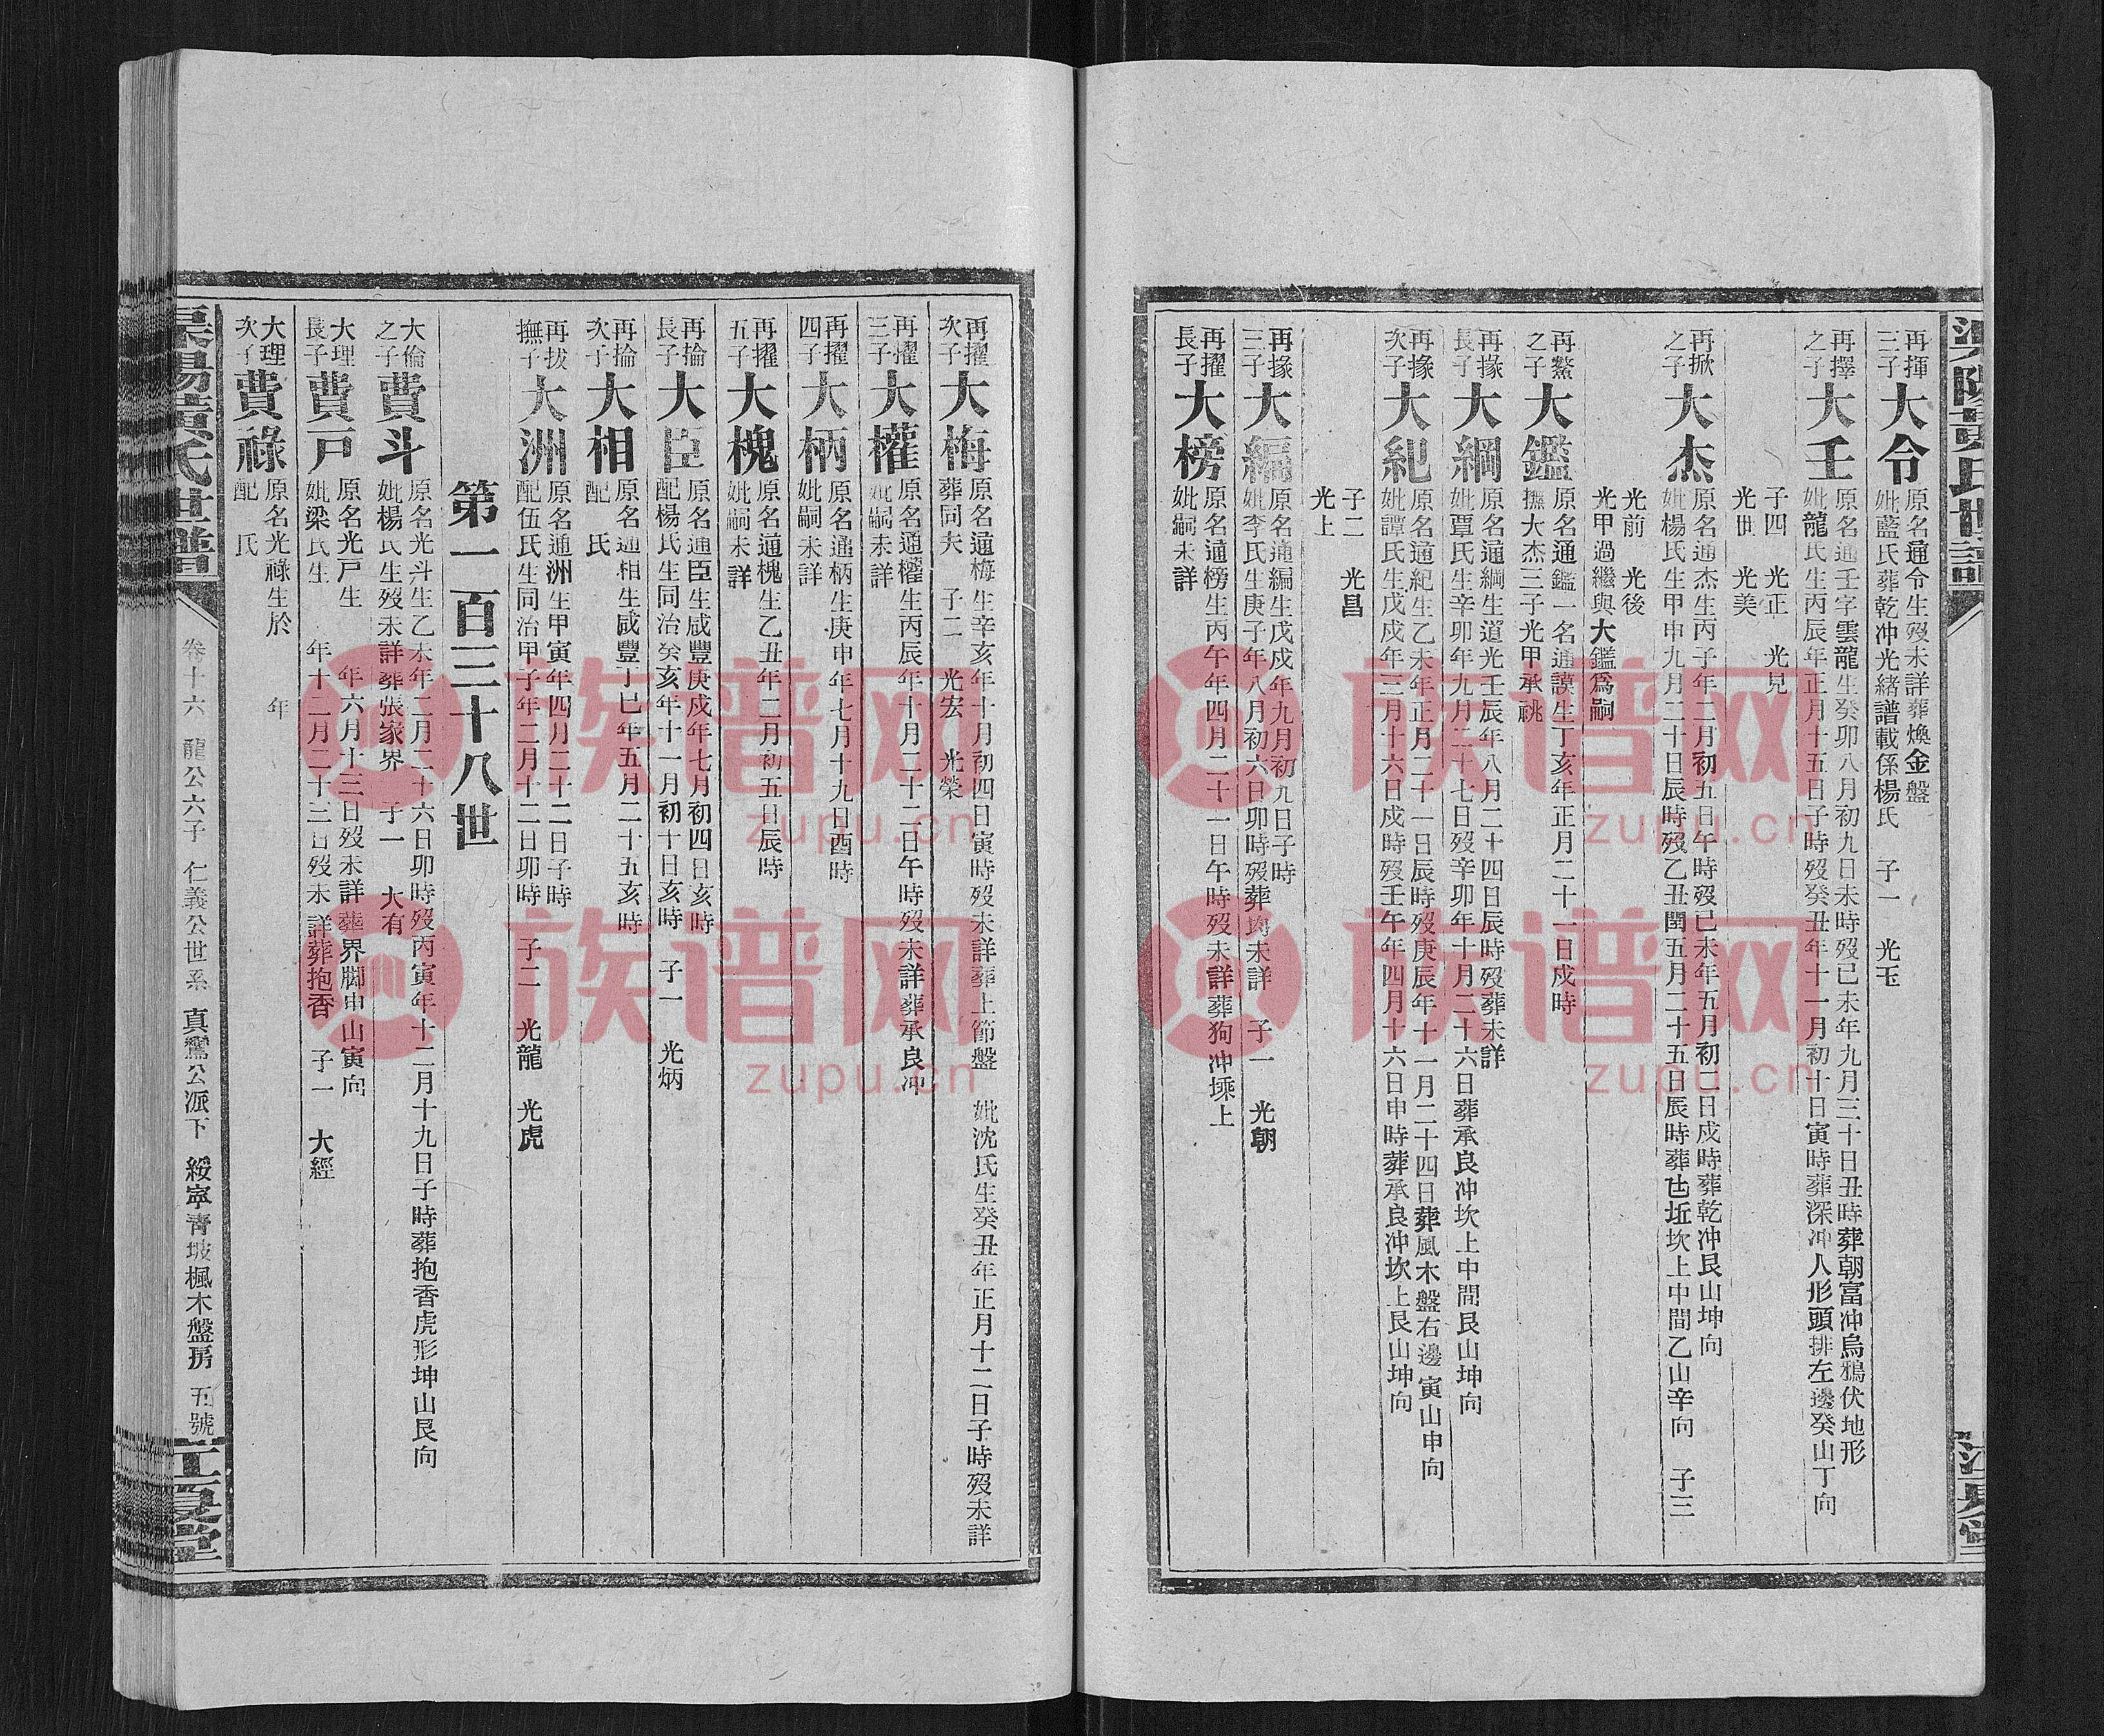 再揮三子
大令
原名通令生歿未詳葬煥金盤
妣藍氏葬乾冲光緒譜載係楊氏 子一 光玉
再擇之子
大壬
原名通壬字雲龍生癸卯八月初九日未時歿已未年九月三十日丑時葬朝富冲烏鴉伏地形
妣龍氏生丙辰年正月十五日子時歿癸丑年十一月初十日寅時葬深冲人形頭排左邊癸山丁向
子四 光正 光兒
光世 光美
再掀之子
大杰
原名通杰生丙子年二月初五日午時歿已未年五月初二日戍時葬乾冲艮山坤向
妣楊氏生甲申九月二十日辰時歿乙丑閏五月二十五日辰時葬古坵坎上中間乙山辛向 子三
光前 光後
光甲過繼與大鑑爲嗣
再鰲之子
大鑑
原名通鑑一名通謨生丁亥年正月二十一日戍時
撫大杰三子光甲承祧
再掾長子
大綱
原名通綱生道光壬辰年八月二十四日辰時歿葬未詳
妣覃氏生辛卯年九月二十七日歿辛卯年十月二十六日葬承良冲坎上中間艮山坤向
再掾次子
大紀
原名通紀生乙未年正月二十一日辰時歿庚辰年十一月二十四日葬風木盤右邊寅山申向
妣譚氏生戊戍年三月十六日戍時歿壬午年四月十六日申時葬承良冲坎上艮山坤向
子二 光昌
光上
再掾三子
大編
原名通編生戊戍年九月初九日子時
妣李氏生庚子年八月初六日卯時歿葬均未詳 子一 光朝
再擢長子
大榜
原名通榜生丙午年四月二十一日午時歿未詳葬狗冲堜上
妣嗣未詳
再擢次子
大梅
原名通梅生辛亥年十月初四日寅時歿未詳葬上節盤 妣沈氏生癸丑年正月十二日子時歿未詳
葬同夫 子二 光宏 光榮
再擢三子
大權
原名通權生丙辰年十月二十二日午時歿未詳葬承良冲
妣嗣未詳
再擢四子
大柄
原名通柄生庚申年七月十九日酉時
妣嗣未詳
再擢五子
大槐
原名通槐生乙丑年二月初五日辰時
妣嗣未詳
再掄長子
大臣
原名通臣生咸豐庚戍年七月初四日亥時
配楊氏生同治癸亥年十一月初十日亥時 子一 光炳
再掄次子
大相
原名通相生咸豐丁巳年五月二十五亥時
配 氏
再拔撫子
大洲
原名通洲生甲寅年四月二十二日子時
配伍氏生同治甲子年二月十二日卯時 子二 光龍 光虎
第一百三十八世
大倫之子
費斗
原名光斗生乙未年二月二十六日卯時歿丙寅年十二月十九日子時葬抱香虎形坤山艮向
妣楊氏生歿未詳葬張家界 子一 大有
大理長子
費戸
原名光戸生 年六月十三日歿未詳葬界脚申山寅向
妣梁氏生 年十二月二十三日歿未詳葬抱香 子一 大經
大理次子
費祿
原名光祿生於 年
配 氏
卷十六 龍公六子 仁義公世系 真鸞公派下 綏寧靑坡楓木盤房 五號